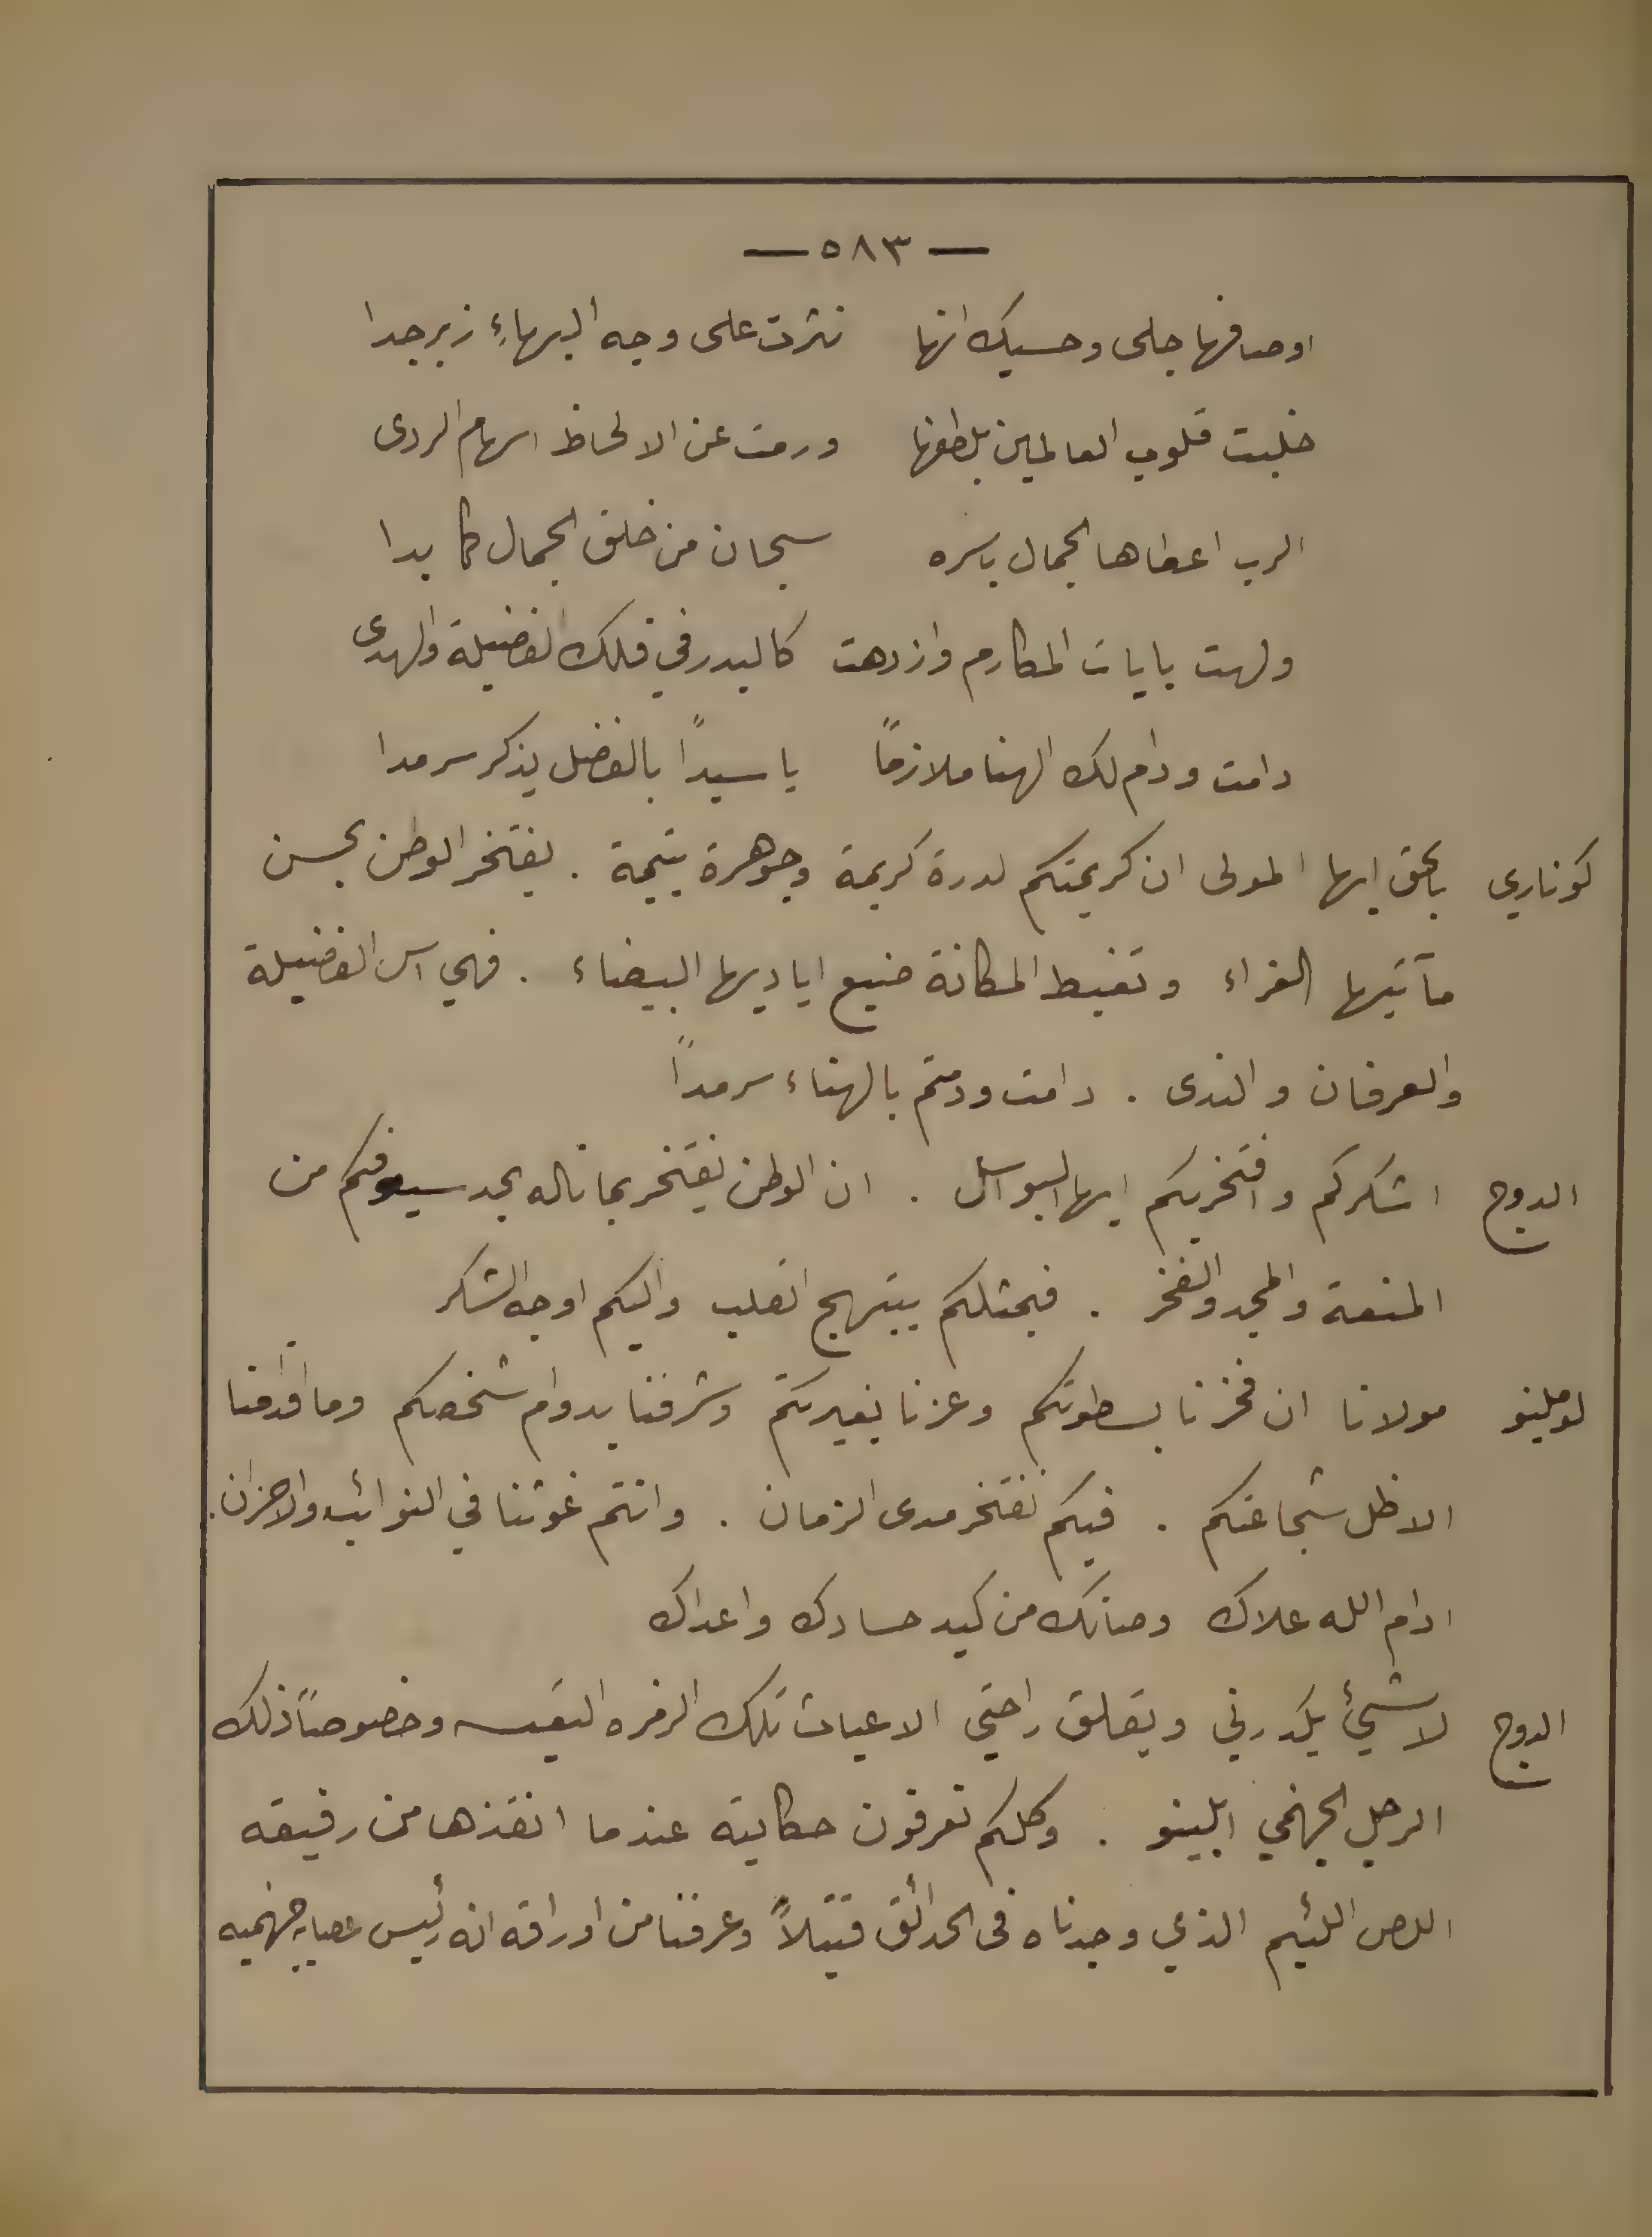 — ٥٨٣ —
اوصافها جلى وحسبك انها نثرت على وجه البهاءِ زبرجدا
خلبت قلوب العالمين بلطفها ورمت عن الالحاظ اسهام الردى
الرب اعطاها الجمال باسره سبحان من خلق الجمال كما بدا
ولهت بايات المكارم وازدهت كالبدر في فلك الفضيلة والهدى
دامت ودام لك الهنا ملازمًا يا سيدًا بالفضل يذكر سرمدا
كوناري بالحق ايها المولى ان كريمتكم لدرة كريمة وجوهرة يتيمة . يفتخر الوطن بحسن
مآتيها الغراء وتغبط المكانة صنيع اياديها البيضاء . فهي اس الفضيلة
والعرفان والندى . دامت ودمتم بالهناء سرمدًا
الدوج اشكركم وافتخر بكم ايها البواسل . ان الوطن يفتخر بما ناله بحد سيوفكم من
المنعة والمجد والفخر . فبمثلكم يبتهج القلب واليكم اوجه الشكر
لوملينو مولانا ان فخرنا بسطوتكم وعزنا بغيرتكم وشرفنا بدوام شخصكم وما اقدامنا
الا ظل شجاعتكم . فبكم نفتخر مدى الزمان . وانتم غوثنا في النوائب والاحزان .
ادام الله علاك وصانك من كيد حسادك واعداك
الدوج لا شيئ يكدرني ويقلق راحتي الا عياث تلك الزمره التعيسه وخصوصًا ذلك
الرجل الجهنمي ابلينو . وكلكم تعرفون حكايته عندما انقذها من رفيقه
اللص اللئيم الذي وجدناه في الحدائق قتيلاً وعرفنا من اوراقه انه رئيس عصابه جهنميه